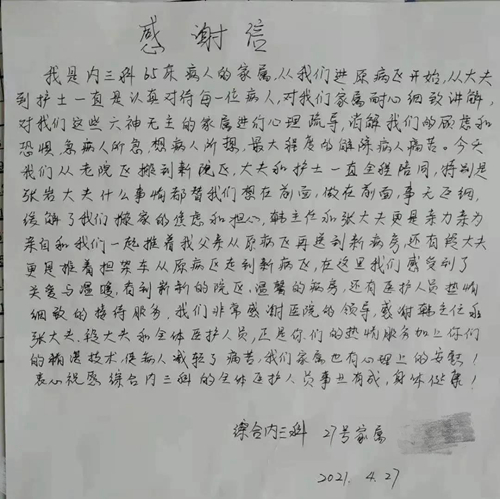 感谢信
我是内三科65床病人的家属,从我们进原病区开始,从大夫
到护士一直是认真对待每一位病人,对我们家属耐心细致讲解,
对我们这些六神无主的家属进行心理疏导,消解我们的顾虑和
恐惧,急病人所急,想病人所想,最大程度的解除病人病苦。今天
我们从老院区搬到新院区,大夫和护士一直全程陪同,特别是
张岩大夫什么事情都替我们想在前面,做在前面,事无巨细,
缓解了我们搬家的焦虑和担心,韩主任和张大夫更是亲力亲为
亲自和我们一起推着我父亲从原病区再送到新病房,还有段大夫
更是推着担架车从原病区走到新病区,在这里我们感受到了
关爱与温暖,看到新新的院区,温馨的病房,还有医护人员热情
细致的接待服务,我们非常感谢医院的领导,感谢韩主任和
张大夫、段大夫和全体医护人员,还是你们的热情服务加上你们
的精湛技术,使病人减轻了病苦,我们家属也有心理上的安慰!
衷心祝愿综合内三科的全体医护人员事业有成,身体健康!
综合内三科 27号家属
2021. 4. 27